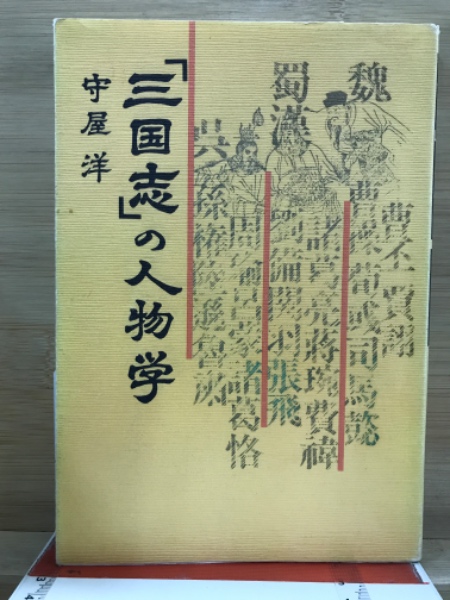 「三国志」の人物学
守屋 洋
魏
曹丕賈詡
曹操荀彧司馬懿
蜀漢
諸葛亮蔣琬費禕
劉備関羽張飛
呉
周瑜呂蒙諸葛恪
孫権陸遜魯粛